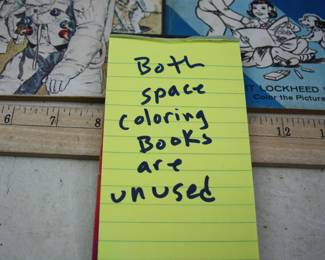 LOCKHEED
Color the Picture
6 7 8 12
Both
space
coloring
Books
are
unused